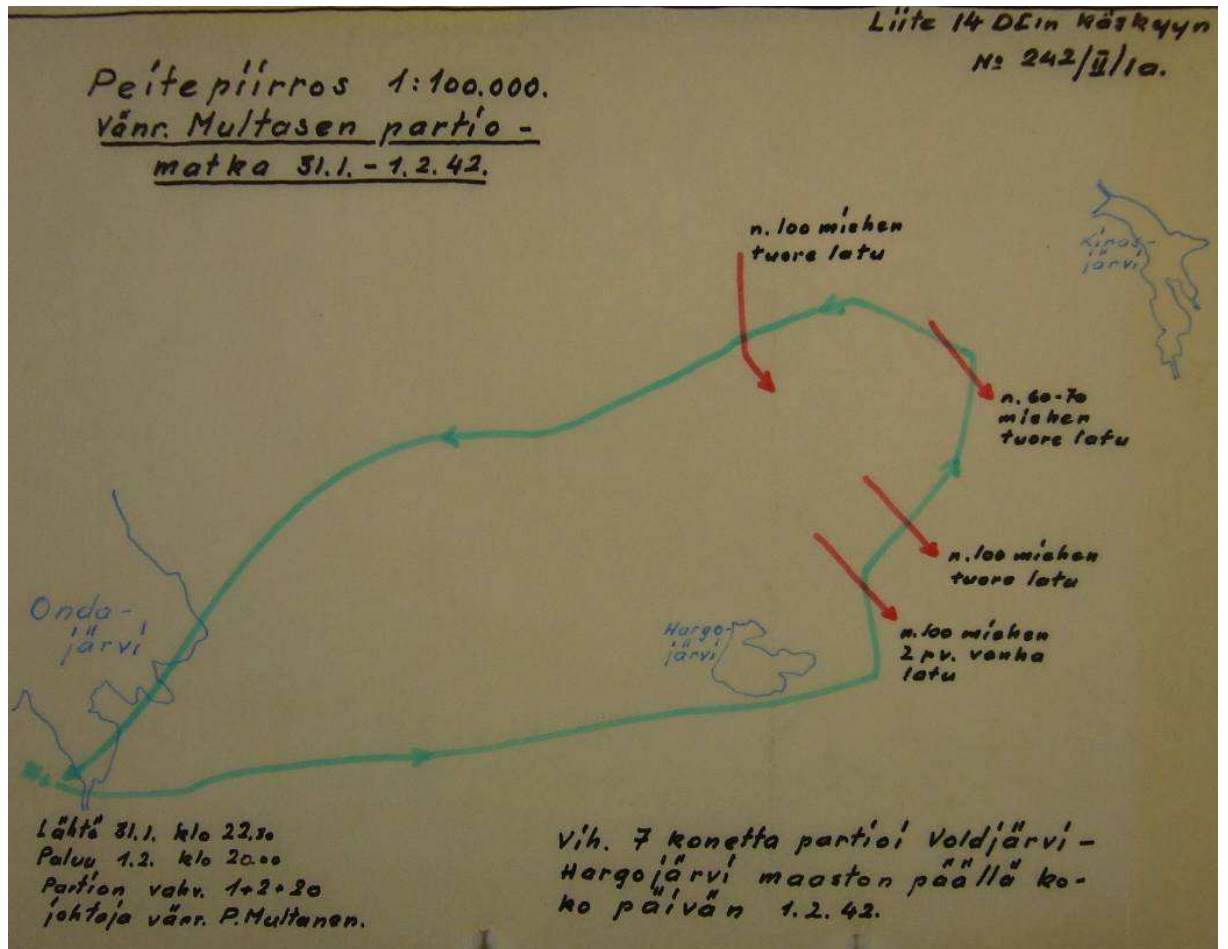 Liite 14 DE:n käskyyn
No 242/II/1a.
Peitepiirros 1:100.000.
vänr. Multasen partio -
matka 31.1. - 1.2.42.
n. 100 miehen
tuore latu
Kiras-
järvi
n. 60-70
miehen
tuore latu
n. 100 miehen
tuore latu
n. 100 miehen
2 pv. vanha
latu
Hargo-
järvi
Onda-
järvi
Lähtö 31.1. klo 22.30
Paluu 1.2. klo 20.00
Partion vahv. 1+2+20
johtaja vänr. P. Multanen.
Vih. 7 konetta partioi Voldjärvi -
Hargojärvi maaston päällä ko-
ko päivän 1.2.42.